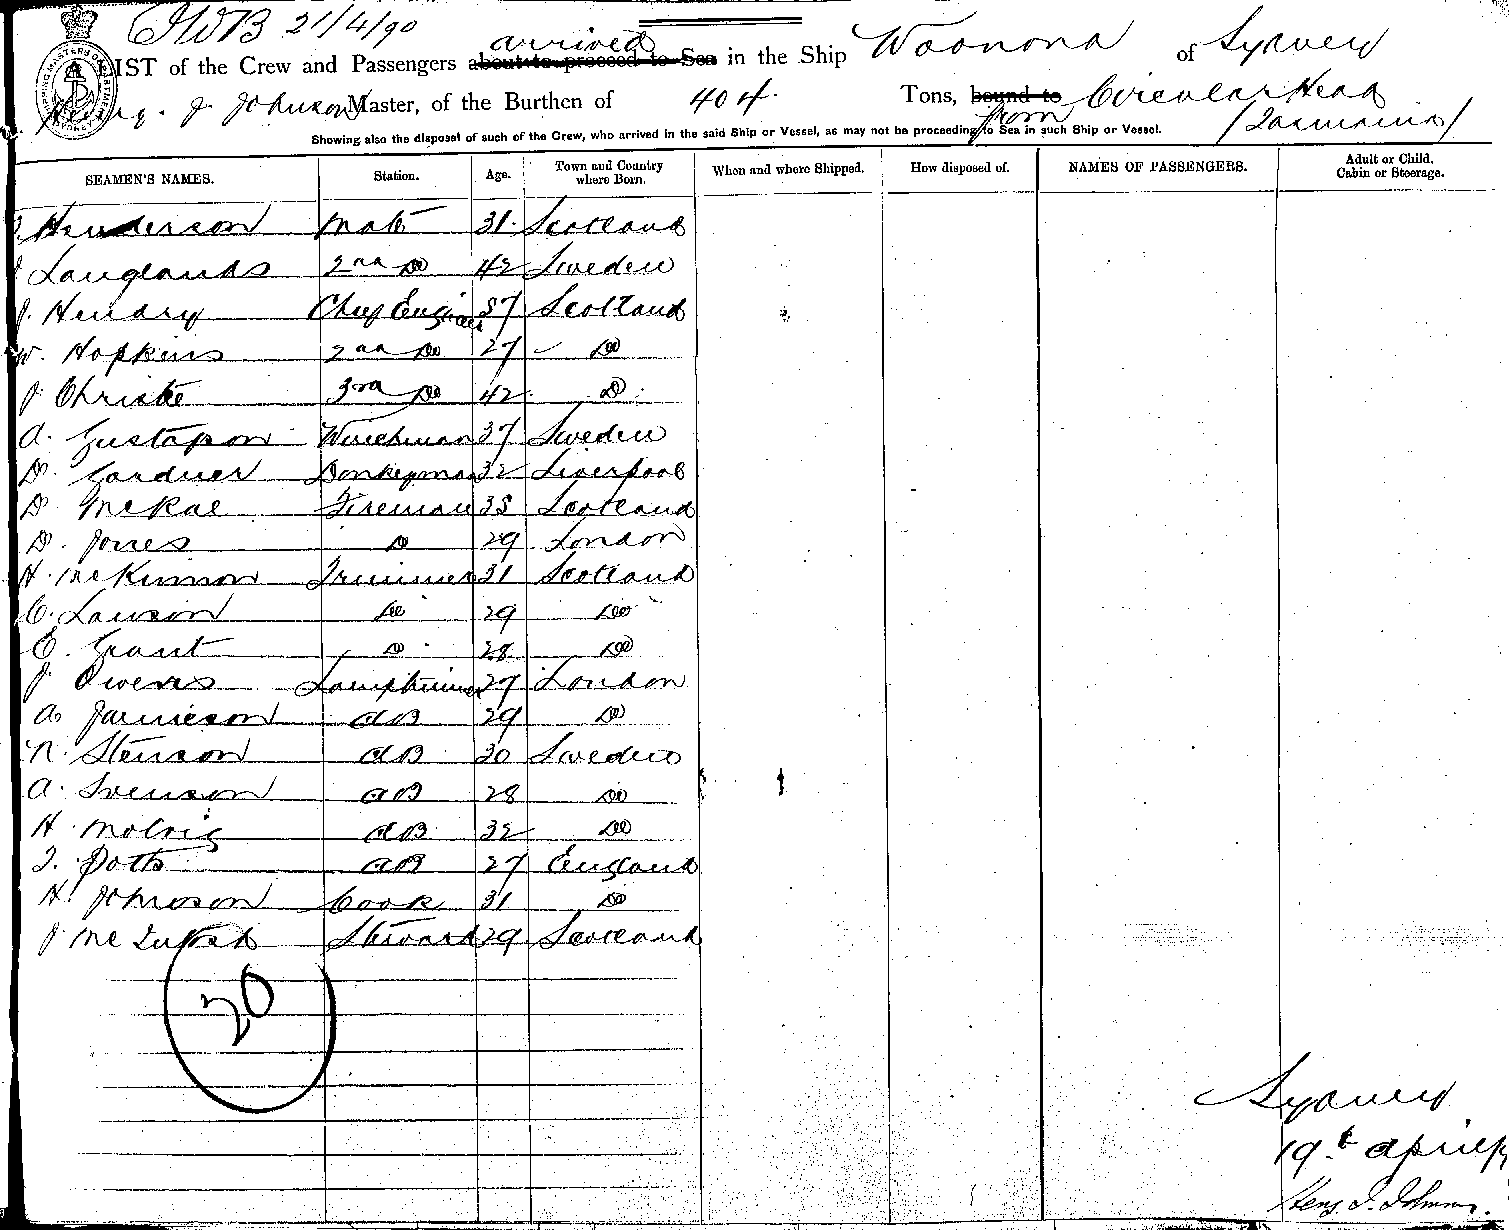 JWB 21/4/90
arrived
A LIST of the Crew and Passengers about to proceed to Sea in the Ship Woonona of Sydney
Henry. J. Johnson Master, of the Burthen of 404 Tons, bound to from Circular Head
(Tasmania)
Showing also the disposal of such of the Crew, who arrived in the said Ship or Vessel, as may not be proceeding to Sea in such Ship or Vessel.
SEAMEN'S NAMES. Station. Age. Town and Country where Born. When and where Shipped. How disposed of. NAMES OF PASSENGERS. Adult or Child. Cabin or Steerage.
Henderson Mate 31 Scotland
Langlands 2nd Do 42 Sweden
J. Hendry Chief Engineer 37 Scotland
W. Hopkins 2nd Do 27 Do
J Christie 3rd Do 42 Do
A. Gustafson Winchman 37 Sweden
D. Gardner Donkeyman 32 Liverpool
D. McRae Fireman 35 Scotland
D. Jones Do 29 London
H. McKinnon Trimmer 31 Scotland
C. Lawson Do 29 Do
E. Grant Do 28 Do
J. Owens Lamptrimmer 27 London
A. Jamieson AB 29 Do
N. Stenson AB 30 Sweden
A. Svenson AB 28 Do
H. AB 32 Do
T. Potts AB 27 England
H. Johnson Cook 31 Do
J McIntosh Steward 29 Scotland
20
Sydney
19th April
Heny. J. Johnson.